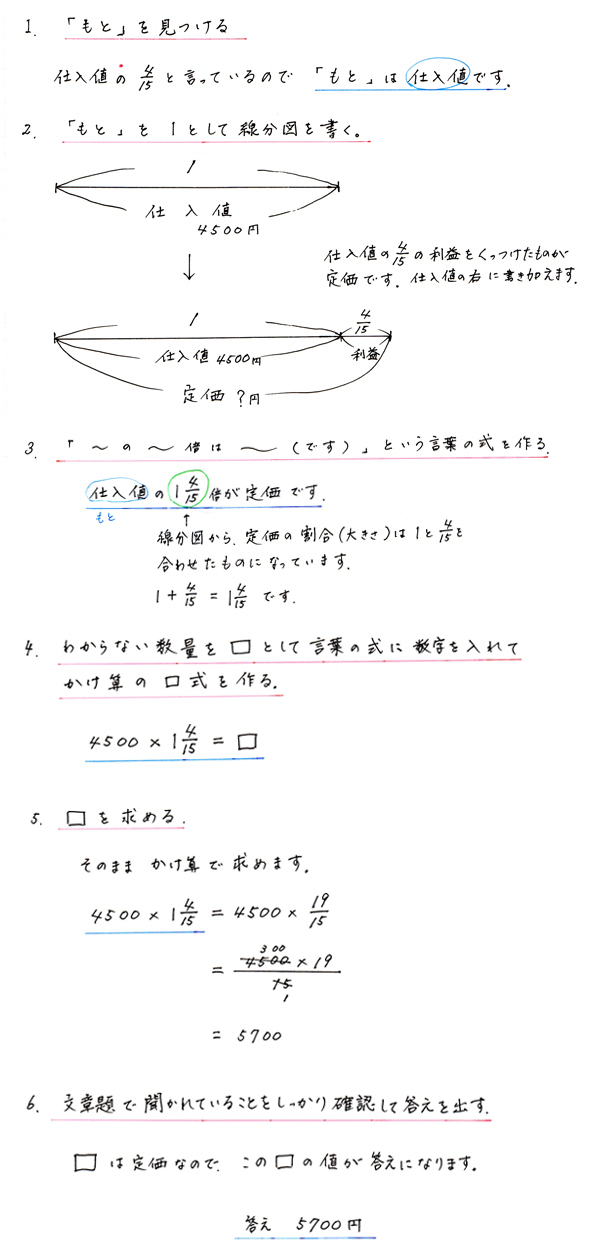 1. 「もと」を見つける
仕入値の 4/15 と言っているので 「もと」は仕入値です。
2. 「もと」を 1として線分図を書く。
1
仕入値
4500円
↓
仕入値の4/15の利益をくっつけたものが
定価です。仕入値の右に書き加えます。
1 4/15
仕入値4500円 利益
定価 ?円
3. 「〜の〜倍は〜(です)」という言葉の式を作る。
仕入値の 1 4/15 倍が定価です。
もと ↑
線分図から、定価の割合(大きさ)は1と4/15を
合わせたものになっています。
1 + 4/15 = 1 4/15 です。
4. わからない数量を □ として言葉の式に数字を入れて
かけ算の □ 式を作る。
4500 × 1 4/15 = □
5. □ を求める。
そのまま かけ算で求めます。
4500 × 1 4/15 = 4500 × 19/15
300
= 4500 × 19 / 15
1
= 5700
6. 文章題で聞かれていることをしっかり確認して答えを出す。
□ は定価なので、この □ の値が答えになります。
答え 5700円